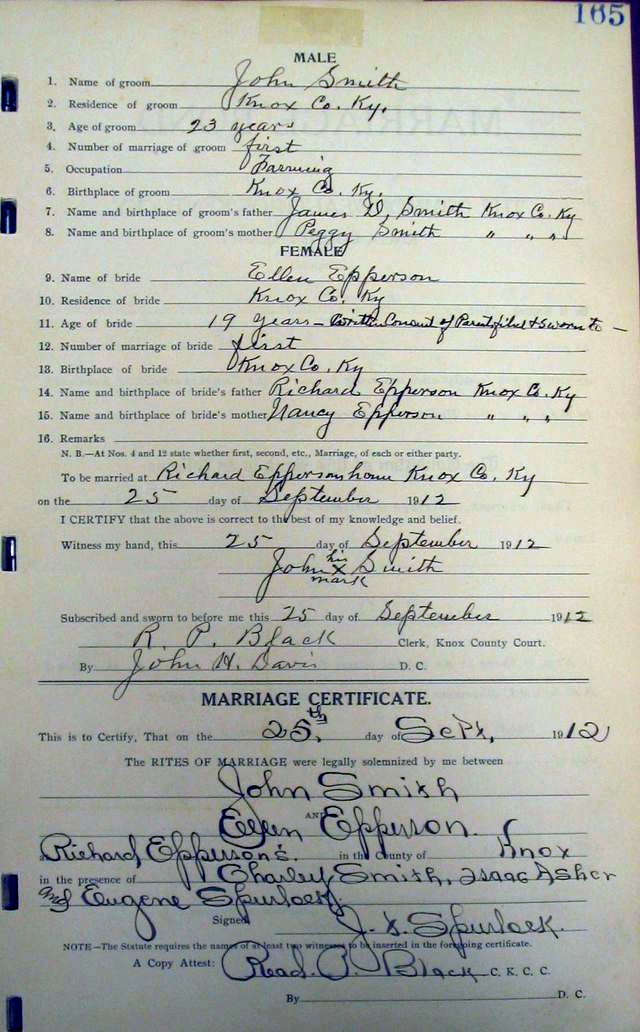 165
MALE
1. Name of groom John Smith
2. Residence of groom Knox Co. Ky.
3. Age of groom 23 years
4. Number of marriage of groom first
5. Occupation Farming
6. Birthplace of groom Knox Co. Ky.
7. Name and birthplace of groom's father James D. Smith Knox Co. Ky
8. Name and birthplace of groom's mother Peggy Smith " " "
FEMALE
9. Name of bride Ellen Epperson
10. Residence of bride Knox Co. Ky
11. Age of bride 19 years – Consent of Parents filed & sworn to –
12. Number of marriage of bride first
13. Birthplace of bride Knox Co. Ky
14. Name and birthplace of bride's father Richard Epperson Knox Co. Ky
15. Name and birthplace of bride's mother Nancy Epperson " " "
16. Remarks
N. B.—At Nos. 4 and 12 state whether first, second, etc., Marriage, of each or either party.
To be married at Richard Epperson home Knox Co. Ky
on the 25 day of September 1912
I CERTIFY that the above is correct to the best of my knowledge and belief.
Witness my hand, this 25 day of September 1912
his
John X Smith
mark
Subscribed and sworn to before me this 25 day of September 1912
R. P. Black Clerk, Knox County Court.
By John H. Davis D. C.
MARRIAGE CERTIFICATE.
This is to Certify, That on the 25th. day of Sept, 1912
The RITES OF MARRIAGE were legally solemnized by me between
John Smith
AND
Ellen Epperson.
Richard Epperson's. in the County of Knox
in the presence of Charley Smith, Isaac Asher
and Eugene Spurlock.
Signed, Spurlock.
NOTE—The Statute requires the names of at least two witnesses to be inserted in the foregoing certificate.
A Copy Attest: Read. P. Black C. K. C. C.
By D. C.